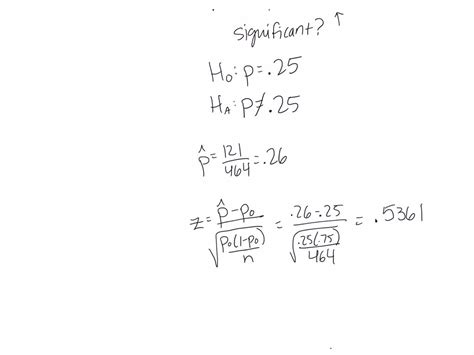 significant? ↑
H₀: p = .25
Hₐ: p ≠ .25
p̂ = 121/464 = .26
z = (p̂ - p₀)/√(p₀(1-p₀)/n) = (.26 - .25)/√(.25(.75)/464) = .5361